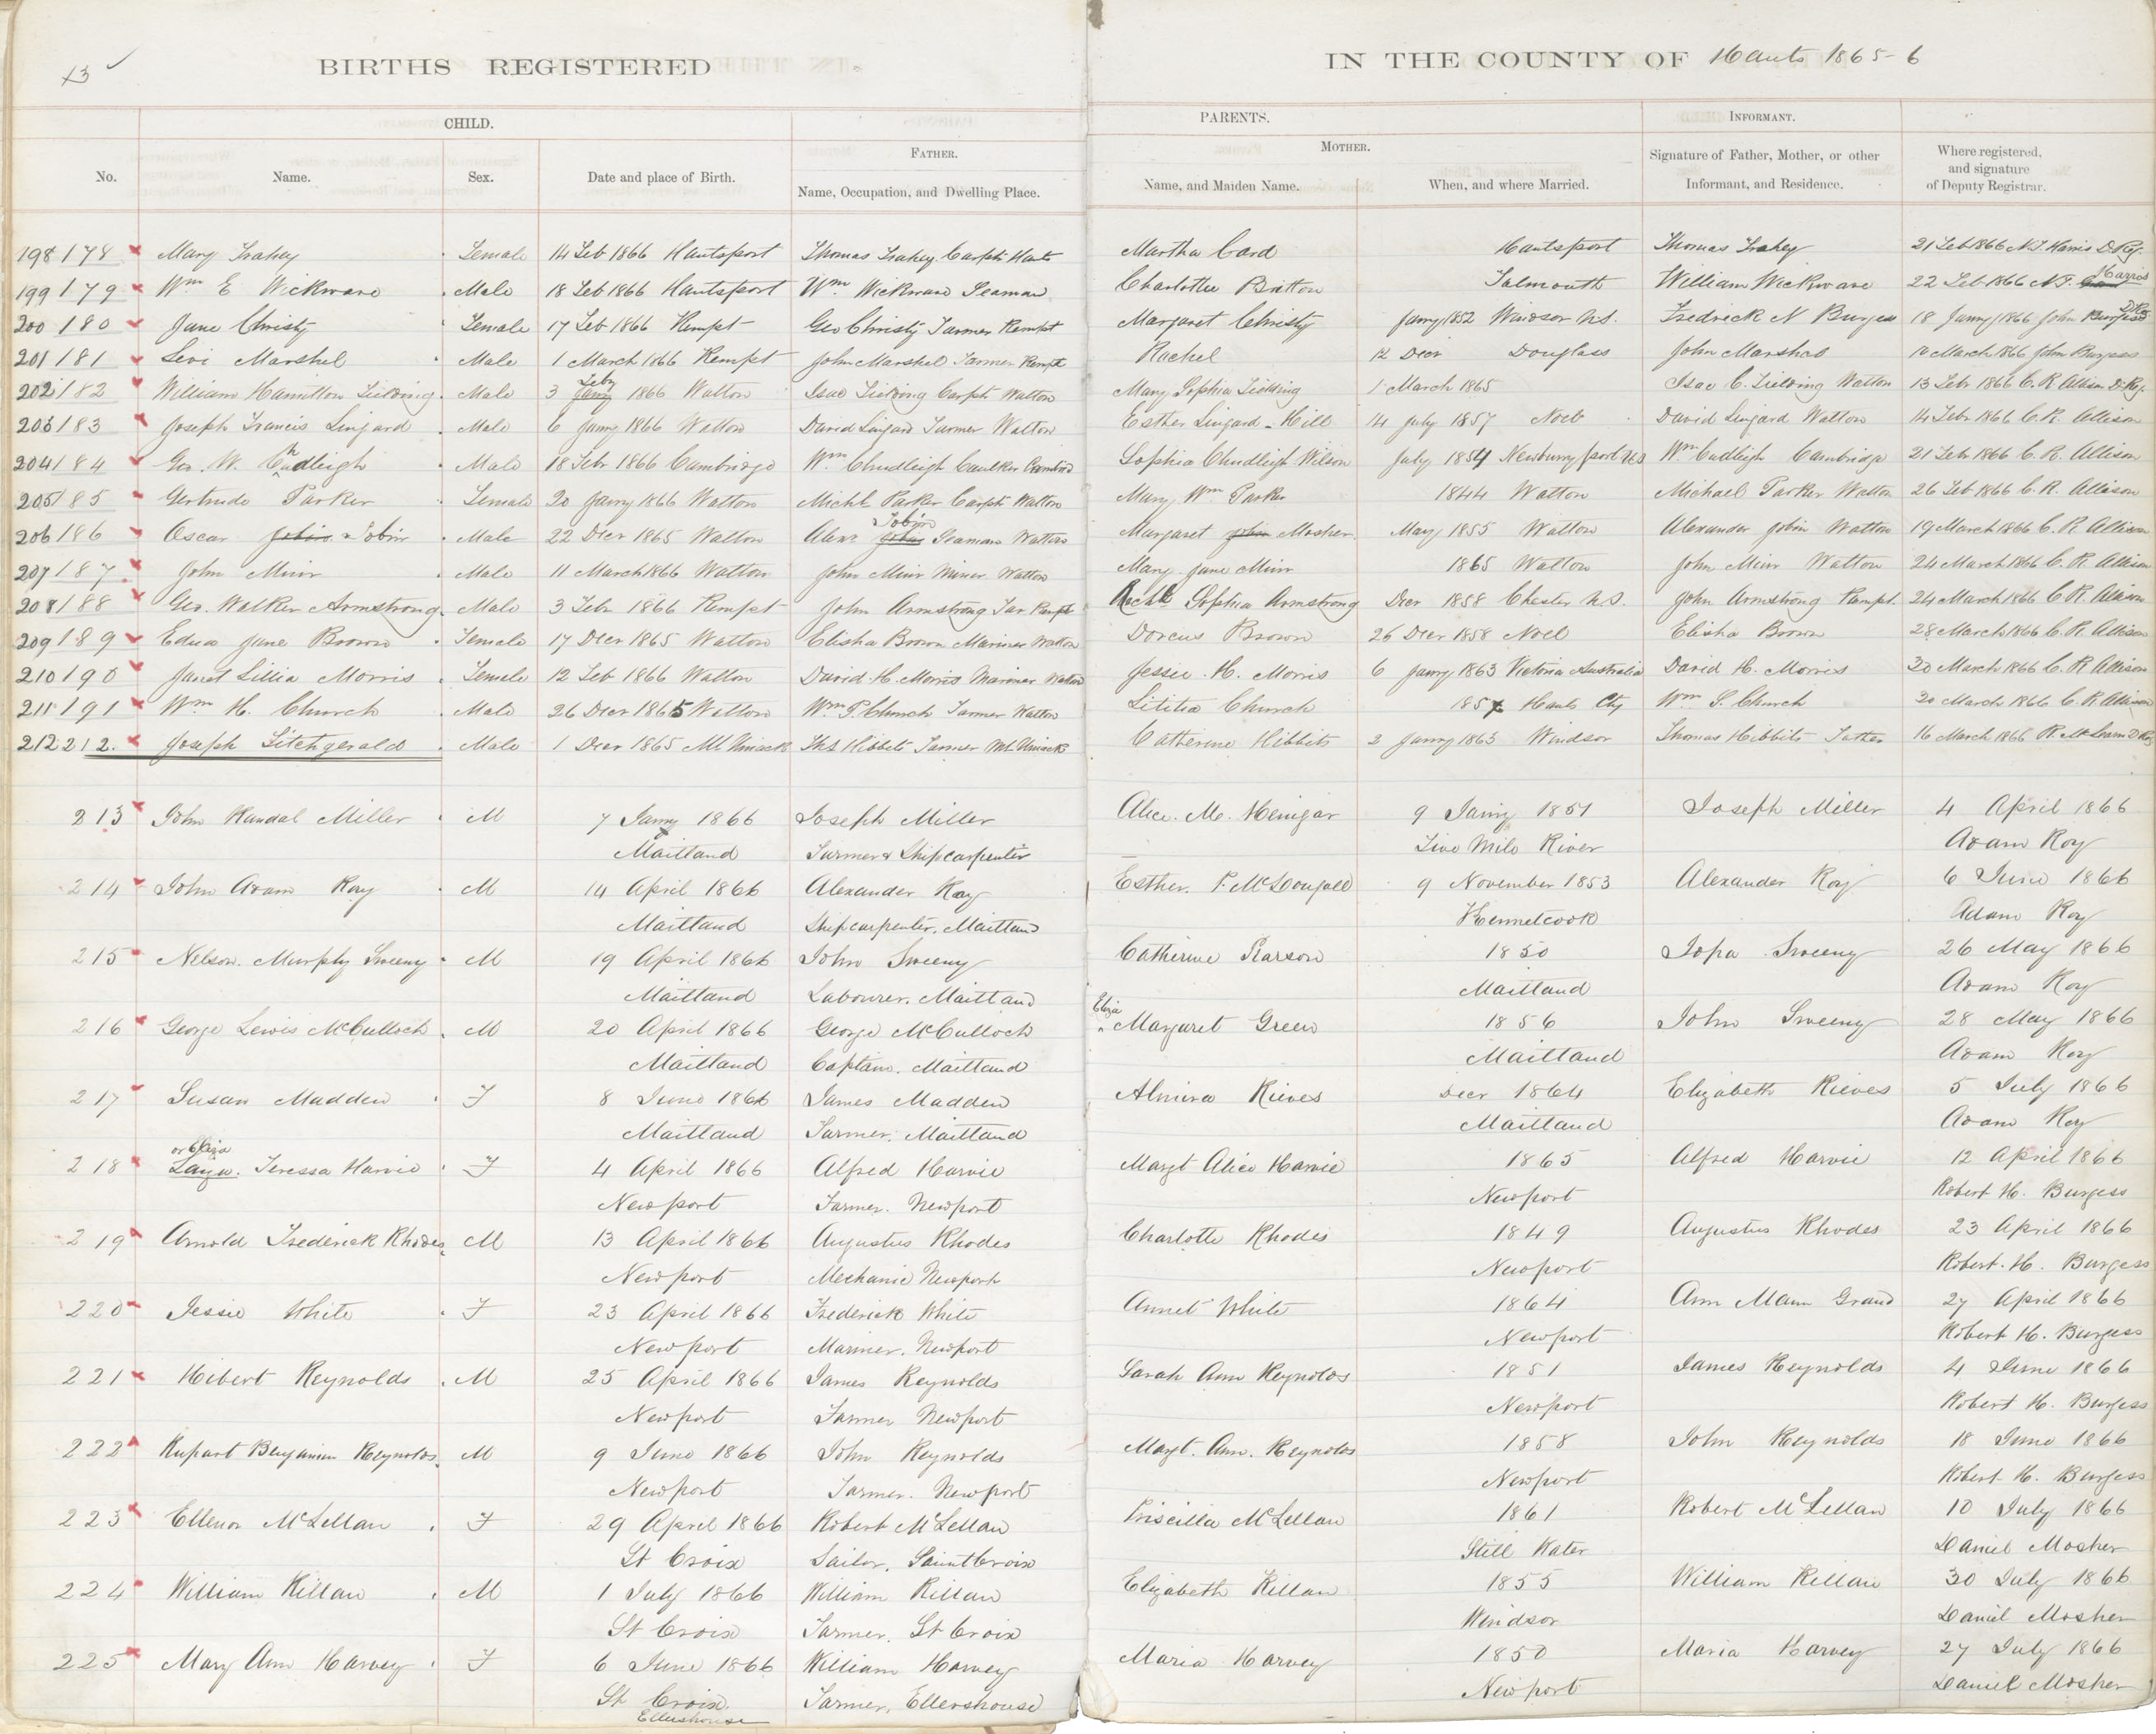 13 ✓
BIRTHS REGISTERED IN THE COUNTY OF Hants 1865-6
CHILD. PARENTS. INFORMANT.
FATHER. MOTHER.
No. Name. Sex. Date and place of Birth. Name, Occupation, and Dwelling Place. Name, and Maiden Name. When, and where Married. Signature of Father, Mother, or other Informant, and Residence. Where registered, and signature of Deputy Registrar.
198 178 Mary Trahey Female 14 Feb 1866 Hantsport Thomas Trahey Carptr Hants Martha Card Hantsport Thomas Trahey 21 Feb 1866 N.T. Harris D.Reg.
199 179 Wm E Wickware Male 18 Feb 1866 Hantsport Wm Wickware Seaman Charlotte Britton Falmouth William Wickware 22 Feb 1866 N.T. Harris
200 180 Jane Christy Female 17 Feb 1866 Kempt Geo Christy Farmer Kempt Margaret Christy Janry 1852 Windsor N.S. Fredrick N Burgess 18 Janry 1866 John Burgess D Reg
201 181 Levi Marshel Male 1 March 1866 Kempt John Marshel Farmer Kempt Rachel 12 Decr Douglass John Marshal 10 March 1866 John Burgess
202 182 William Hamilton Fielding Male 3 Janry Feby 1866 Walton Isac Fielding Carptr Walton Mary Sophia Fielding 1 March 1865 Isac C. Fielding Walton 13 Febr 1866 C. R. Allison D. Reg.
203 183 Joseph Francis Lingard Male 6 Janry 1866 Walton David Lingard Farmer Walton Esther Lingard - Hill 14 July 1857 Noel David Lingard Walton 14 Febr 1866 C. R. Allison
204 184 Geo. W. Chudleigh Male 18 Febr 1866 Cambridge Wm Chudleigh Caulker Cambrid Sophia Chudleigh Wilson July 1854 Newburyport US Wm Cudleigh Cambridge 21 Febr 1866 C. R. Allison
205 185 Gertrude Parker Female 20 Janry 1866 Walton Michl Parker Carptr Walton Mary Wm Parker 1844 Walton Michael Parker Walton 26 Feb 1866 C. R. Allison
206 186 Oscar Jobin Tobin Male 22 Decr 1865 Walton Alexr Jobin Tobin Seaman Walton Margaret Jobin Mosher May 1855 Walton Alexander Jobin Walton 19 March 1866 C. R. Allison
207 187 John Muir Male 11 March 1866 Walton John Muir Miner Walton Mary Jane Muir 1865 Walton John Muir Walton 24 March 1866 C. R. Allison
208 188 Geo. Walker Armstrong Male 3 Febr 1866 Kempt John Armstrong Far Kempt Rachl Sophia Armstrong Decr 1858 Chester N.S. John Armstrong Kempt. 24 March 1866 C. R. Allison
209 189 Edua Jane Brown Female 17 Decr 1865 Walton Elisha Brown Mariner Walton Dorcus Brown 26 Decr 1858 Noel Elisha Brown 28 March 1866 C. R. Allison
210 190 Janet Lillia Morris Female 12 Feb 1866 Walton David. H. Morris Mariner Walton Jessie. H. Morris 6 Janry 1863 Victoria Australia David H. Morris 30 March 1866 C. R. Allison
211 191 Wm H. Church Male 26 Decr 1865 Walton Wm S. Church Farmer Walton Lititia Church 1857 Hants Cty Wm S. Church 30 March 1866 C. R. Allison
212 212. Joseph Fitchgerald Male 1 Decr 1865 Mt Uniacke Ths Hibbits Farmer Mt Uniacke Catherine Hibbits 2 Janry 1863 Windsor Thomas Hibbits Father 16 March 1866 R. McLearn D Reg
213 John Randal Miller M 7 Janry 1866 Joseph Miller Alice. M. Meingar 9 Janry 1851 Joseph Miller 4 April 1866
Maitland Farmer & Shipcarpenter Five Mile River Adam Roy
214 John Adam Roy M 14 April 1866 Alexander Roy Esther. P. McDougall 9 November 1853 Alexander Roy 6 June 1866
Maitland Shipcarpenter. Maitland Kennetcook Adam Roy
215 Nelson. Murphy Sweeny M 19 April 1866 John Sweeny Catherine Pearson 1850 Jopa Sweeny 26 May 1866
Maitland Labourer. Maitland Maitland Adam Roy
216 George Lewis McCulloch M 20 April 1866 George McCulloch Eliza Margaret Green 1856 John Sweeny 28 May 1866
Maitland Captain. Maitland Maitland Adam Roy
217 Susan Madden F 8 June 1866 James Madden Almira Rieves Decr 1864 Elizabeth Rieves 5 July 1866
Maitland Farmer. Maitland Maitland Adam Roy
or Eliza
218 Laya. Teressa Harvie F 4 April 1866 Alfred Harvie Margt Alice Harvie 1865 Alfred Harvie 12 April 1866
Newport Farmer. Newport Newport Robert H. Burgess
219 Arnold Frederick Rhodes M 13 April 1866 Augustus Rhodes Charlotte Rhodes 1849 Augustus Rhodes 23 April 1866
Newport Mechanic Newport Newport Robert. H. Burgess
220 Jessie White F 23 April 1866 Frederick White Annet White 1864 Ann Mann Grand 27 April 1866
Newport Mariner. Newport Newport Robert H. Burgess
221 Hibert Reynolds M 25 April 1866 James Reynolds Sarah Ann Reynolds 1851 James Reynolds 4 June 1866
Newport Farmer Newport Newport Robert H. Burgess
222 Rupart Benjamin Reynolds M 9 June 1866 John Reynolds Margt. Ann. Reynolds 1858 John Reynolds 18 June 1866
Newport Farmer. Newport Newport Robert. H. Burgess
223 Ellenor McLellan F 29 April 1866 Robert McLellan Priscilla McLellan 1861 Robert McLellan 10 July 1866
St Croix Sailor, Saint Croix Still Water Daniel Mosher
224 William Killan M 1 July 1866 William Killan Elizabeth Killan 1855 William Killan 30 July 1866
St Croix Farmer. St Croix Windsor Daniel Mosher
225 Mary Ann Harvey F 6 June 1866 William Harvey Maria Harvey 1850 Maria Harvey 27 July 1866
St Croix Farmer, Ellershouse Newport Daniel Mosher
Ellershouse